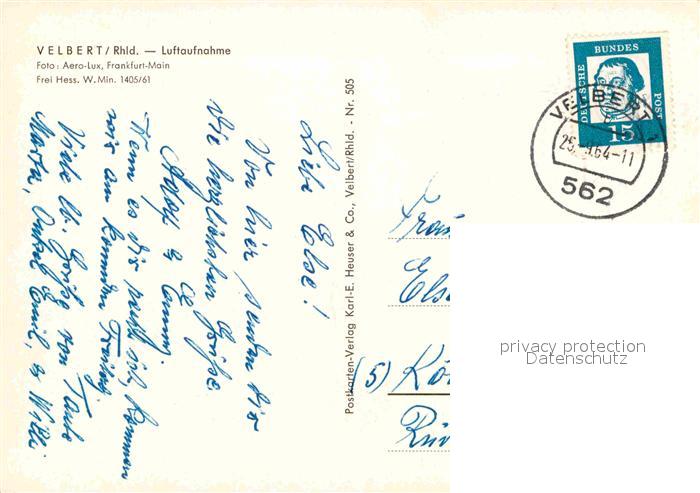 VELBERT/Rhld. — Luftaufnahme
Foto: Aero-Lux, Frankfurt-Main
Frei Hess. W. Min. 1405/61
Liebe Else!
Von hier senden dir
die herzlichsten Grüße
Adolf &
Wenn es dir recht ist, kommen
wir am kommenden Freitag.
Viele lb. Grüße von Tante
Marta, Onkel Emil, & Willi
Postkarten-Verlag Karl-E. Heuser & Co., Velbert/Rhld. - Nr. 505
DEUTSCHE BUNDES POST
15
VELBERT
25.-9.64-11
562
Frau
Els
(5) Kö
privacy protection
Datenschutz